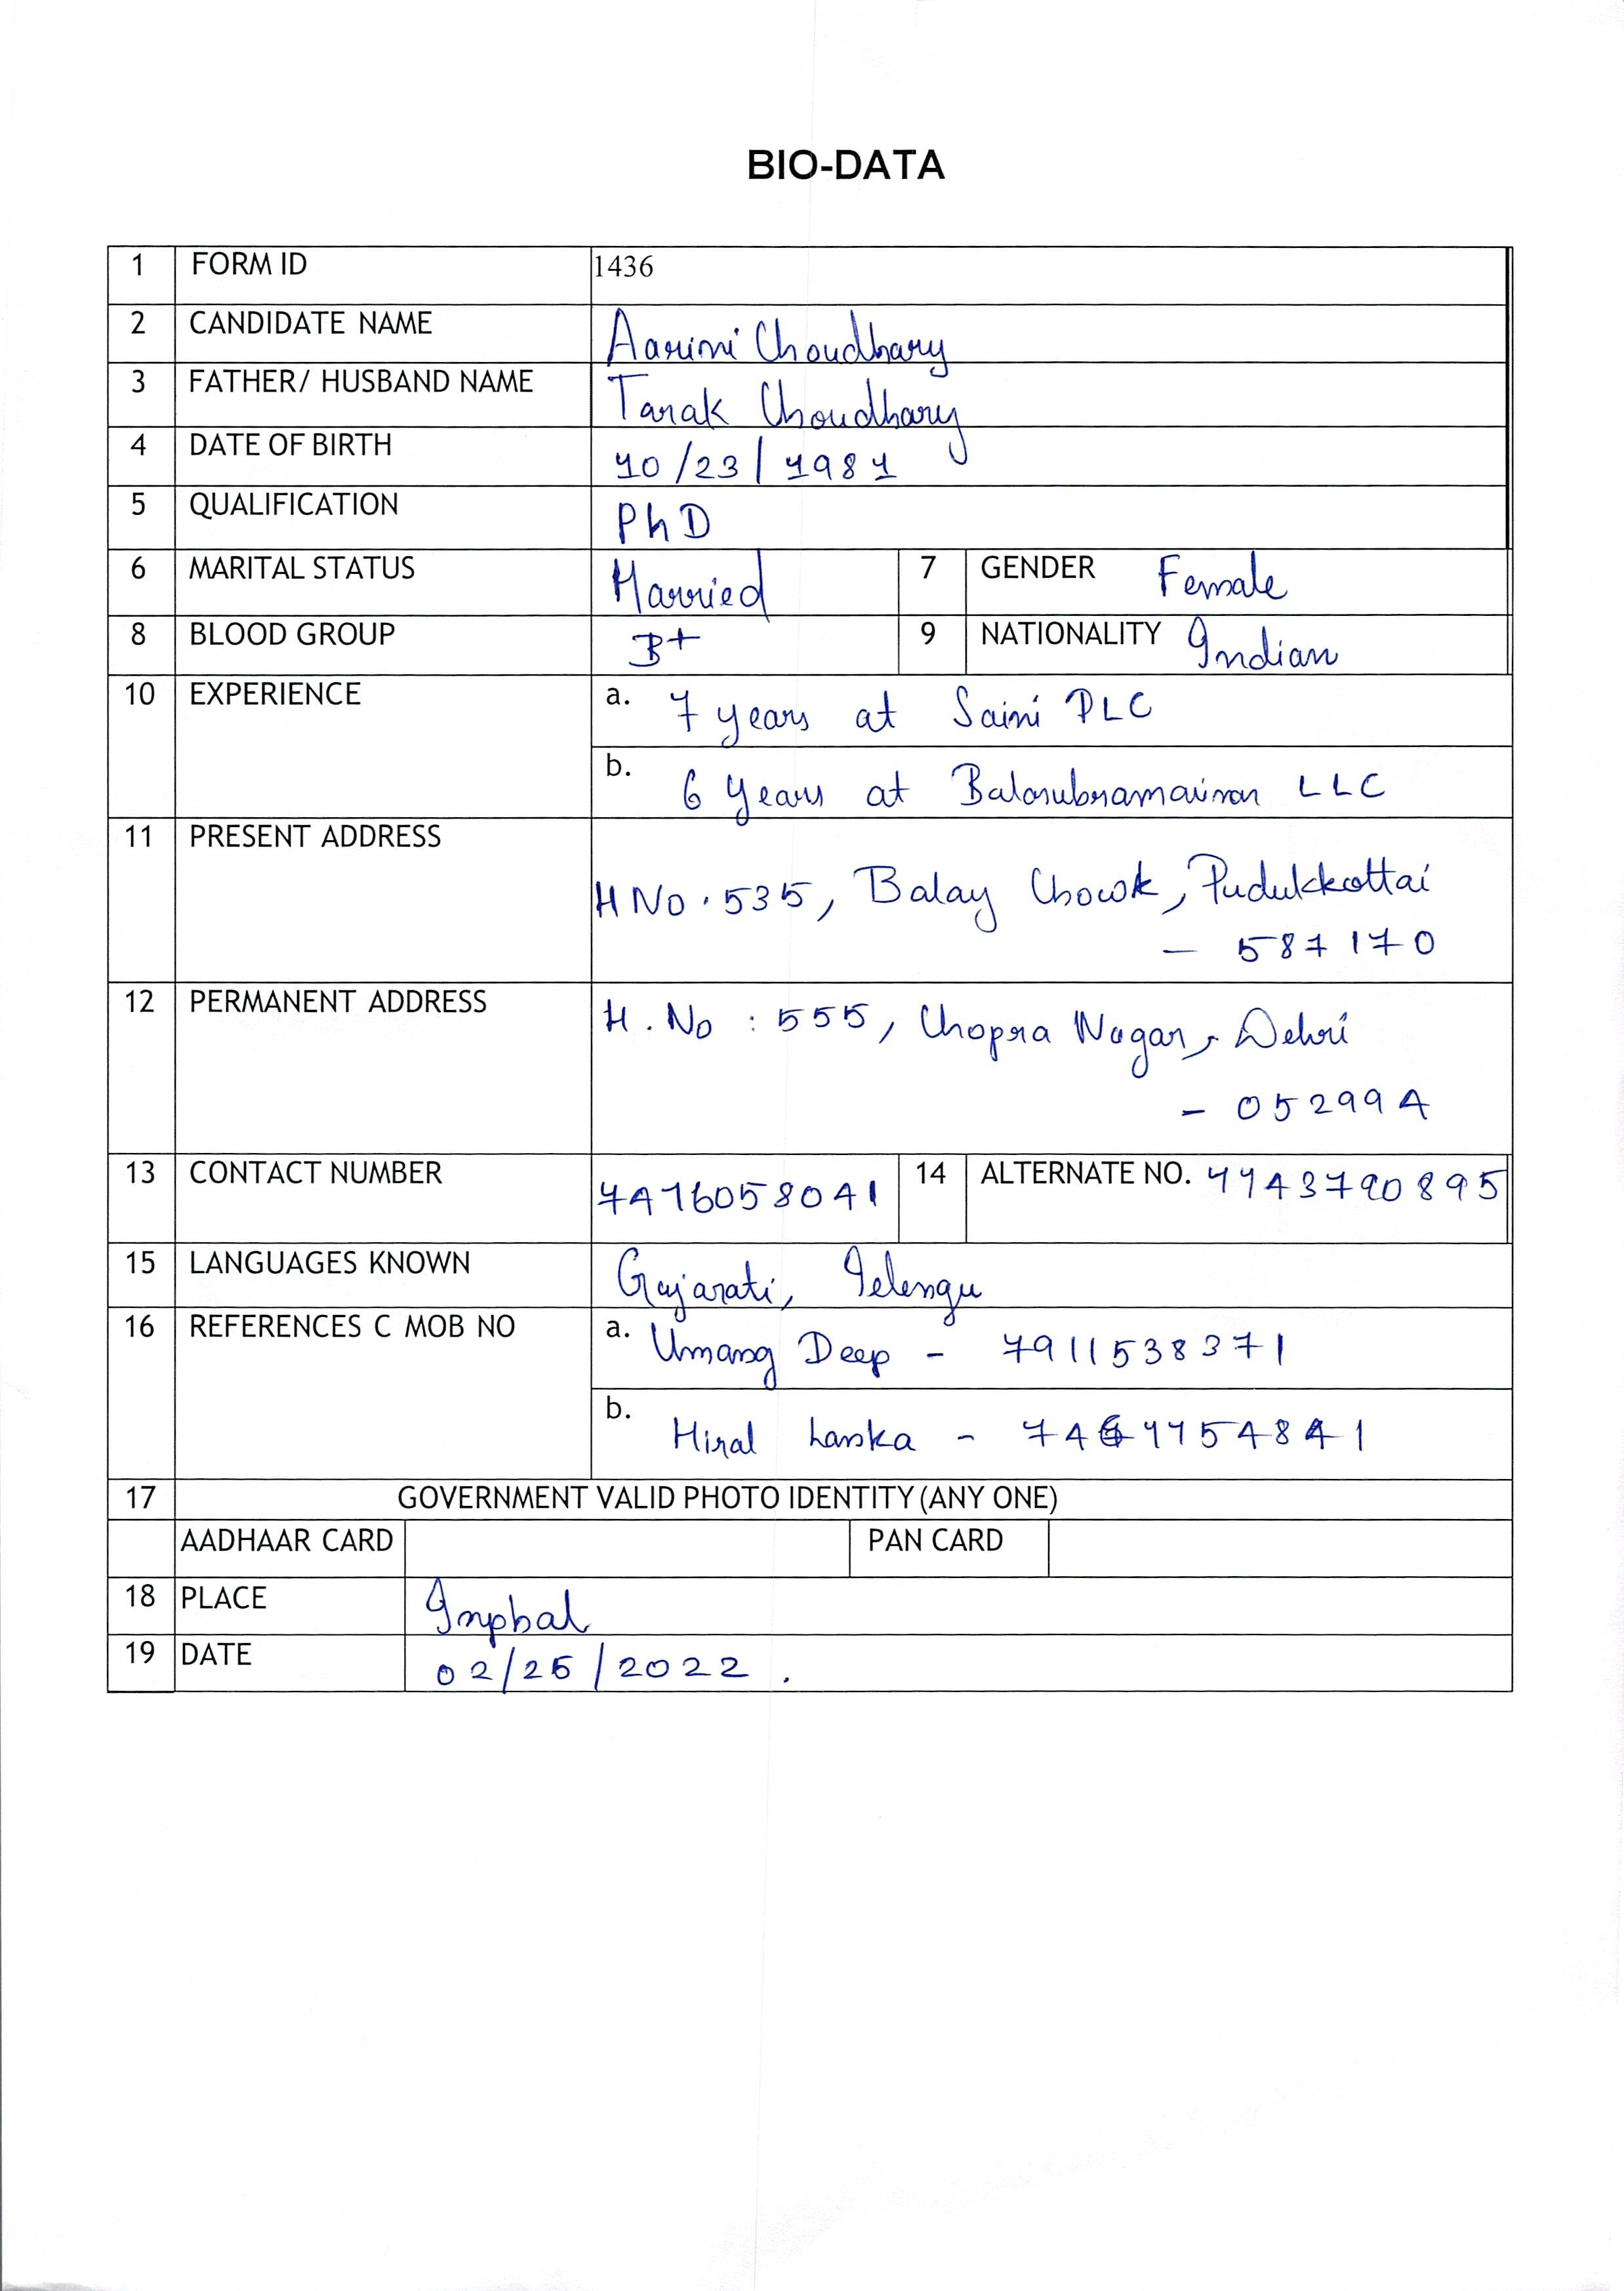 BIO-DATA
1 FORM ID 1436
2 CANDIDATE NAME Aarini Choudhary
3 FATHER/ HUSBAND NAME Tarak Choudhary
4 DATE OF BIRTH 10/23/1981
5 QUALIFICATION PhD
6 MARITAL STATUS Married 7 GENDER Female
8 BLOOD GROUP B+ 9 NATIONALITY Indian
10 EXPERIENCE a. 7 years at Saini PLC
b. 6 years at Balasubramainan LLC
11 PRESENT ADDRESS
H NO. 535, Balay Chowk, Pudukkottai
- 587170
12 PERMANENT ADDRESS H.No : 555, Chopra Nagar, Dehri
- 052994
13 CONTACT NUMBER 7416058041 14 ALTERNATE NO. 1143790895
15 LANGUAGES KNOWN Gujarati, Telengu
16 REFERENCES C MOB NO a. Umang Deep - 7911538371
b. Hiral Lanka -
17 GOVERNMENT VALID PHOTO IDENTITY (ANY ONE)
AADHAAR CARD PAN CARD
18 PLACE Imphal
19 DATE 02/25/2022.